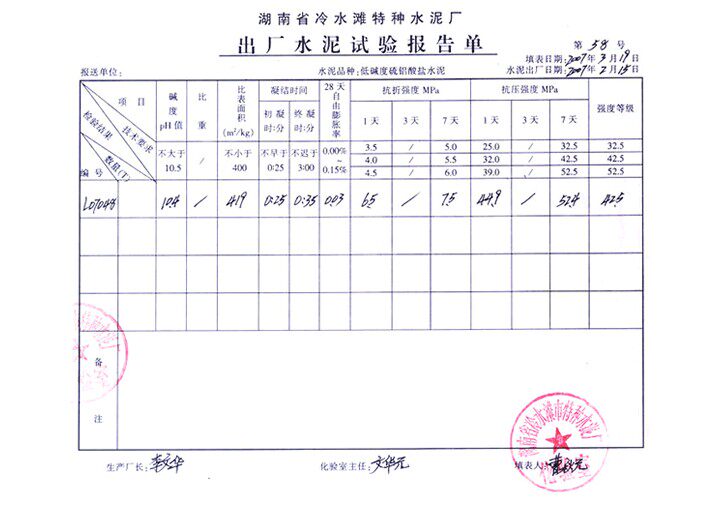 湖南省冷水滩特种水泥厂
出厂水泥试验报告单
第 58 号
填表日期: 2007年3月19日
报送单位: 水泥品种: 低碱度硫铝酸盐水泥 水泥出厂日期: 2007年2月15日
项目 技术要求 检验结果 数量(T) 编号
碱度 pH值 比重 比表面积 (m²/kg) 凝结时间 初凝 时:分 终凝 时:分 28天自由膨胀率 抗折强度 MPa 1天 3天 7天 抗压强度 MPa 1天 3天 7天 强度等级
不大于 10.5 / 不小于 400 不早于 0:25 不迟于 3:00 0.00% ~ 0.15%
3.5 / 5.0 25.0 / 32.5 32.5
4.0 / 5.5 32.0 / 42.5 42.5
4.5 / 6.0 39.0 / 52.5 52.5
L07048 10.4 / 419 0:25 0:35 0.03 6.5 / 7.5 44.9 / 52.4 42.5
备注
湖南省冷水滩市特种水泥厂
化验室
生产厂长: 化验室主任: 文华元 填表人: